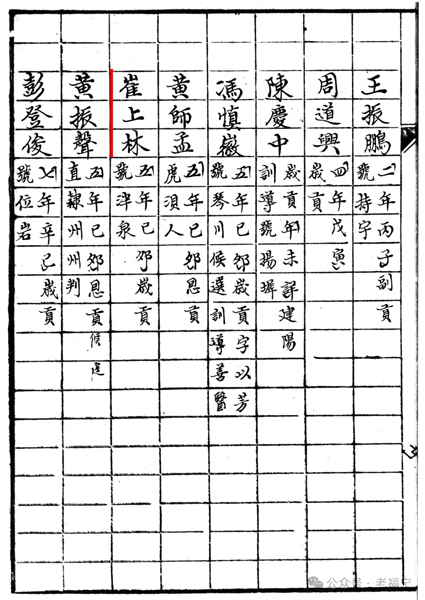 王振鵬
二年丙子副貢
號持宇
周道興
四年戊寅
歲貢
陳慶中
歲貢年未詳建陽
訓導號揚墀
馮慎
五年己卯歲貢字以芳
號琴川候選訓導善醫
黃師孟
五年己卯恩貢
虎浿人
崔上林
五年己卯歲貢
號津泉
黃振聲
五年己卯恩貢候選
直隸州州判
彭登俊
七年辛巳歲貢
號位岩
公众号·老福宁